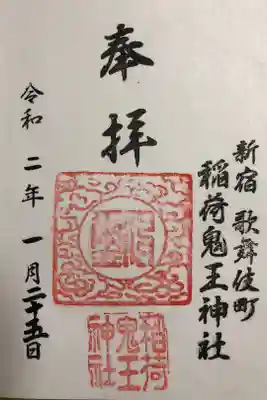 新宿 歌舞伎町
稲荷鬼王神社
奉拝
令和二年一月二十五日
稲荷
鬼王
神社